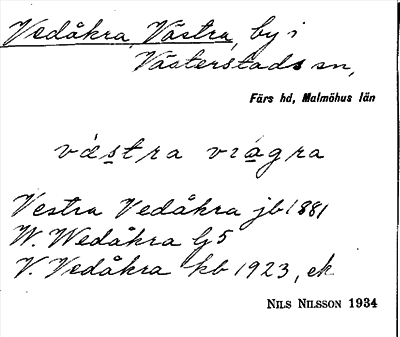 Vedåkra, Västra, by i
Västerstads sn,
Färs hd, Malmöhus län
västra viagra
Vestra Vedåkra jb 1881
W. Wedåkra G5
V. Vedåkra kb 1923, ek
NILS NILSSON 1934